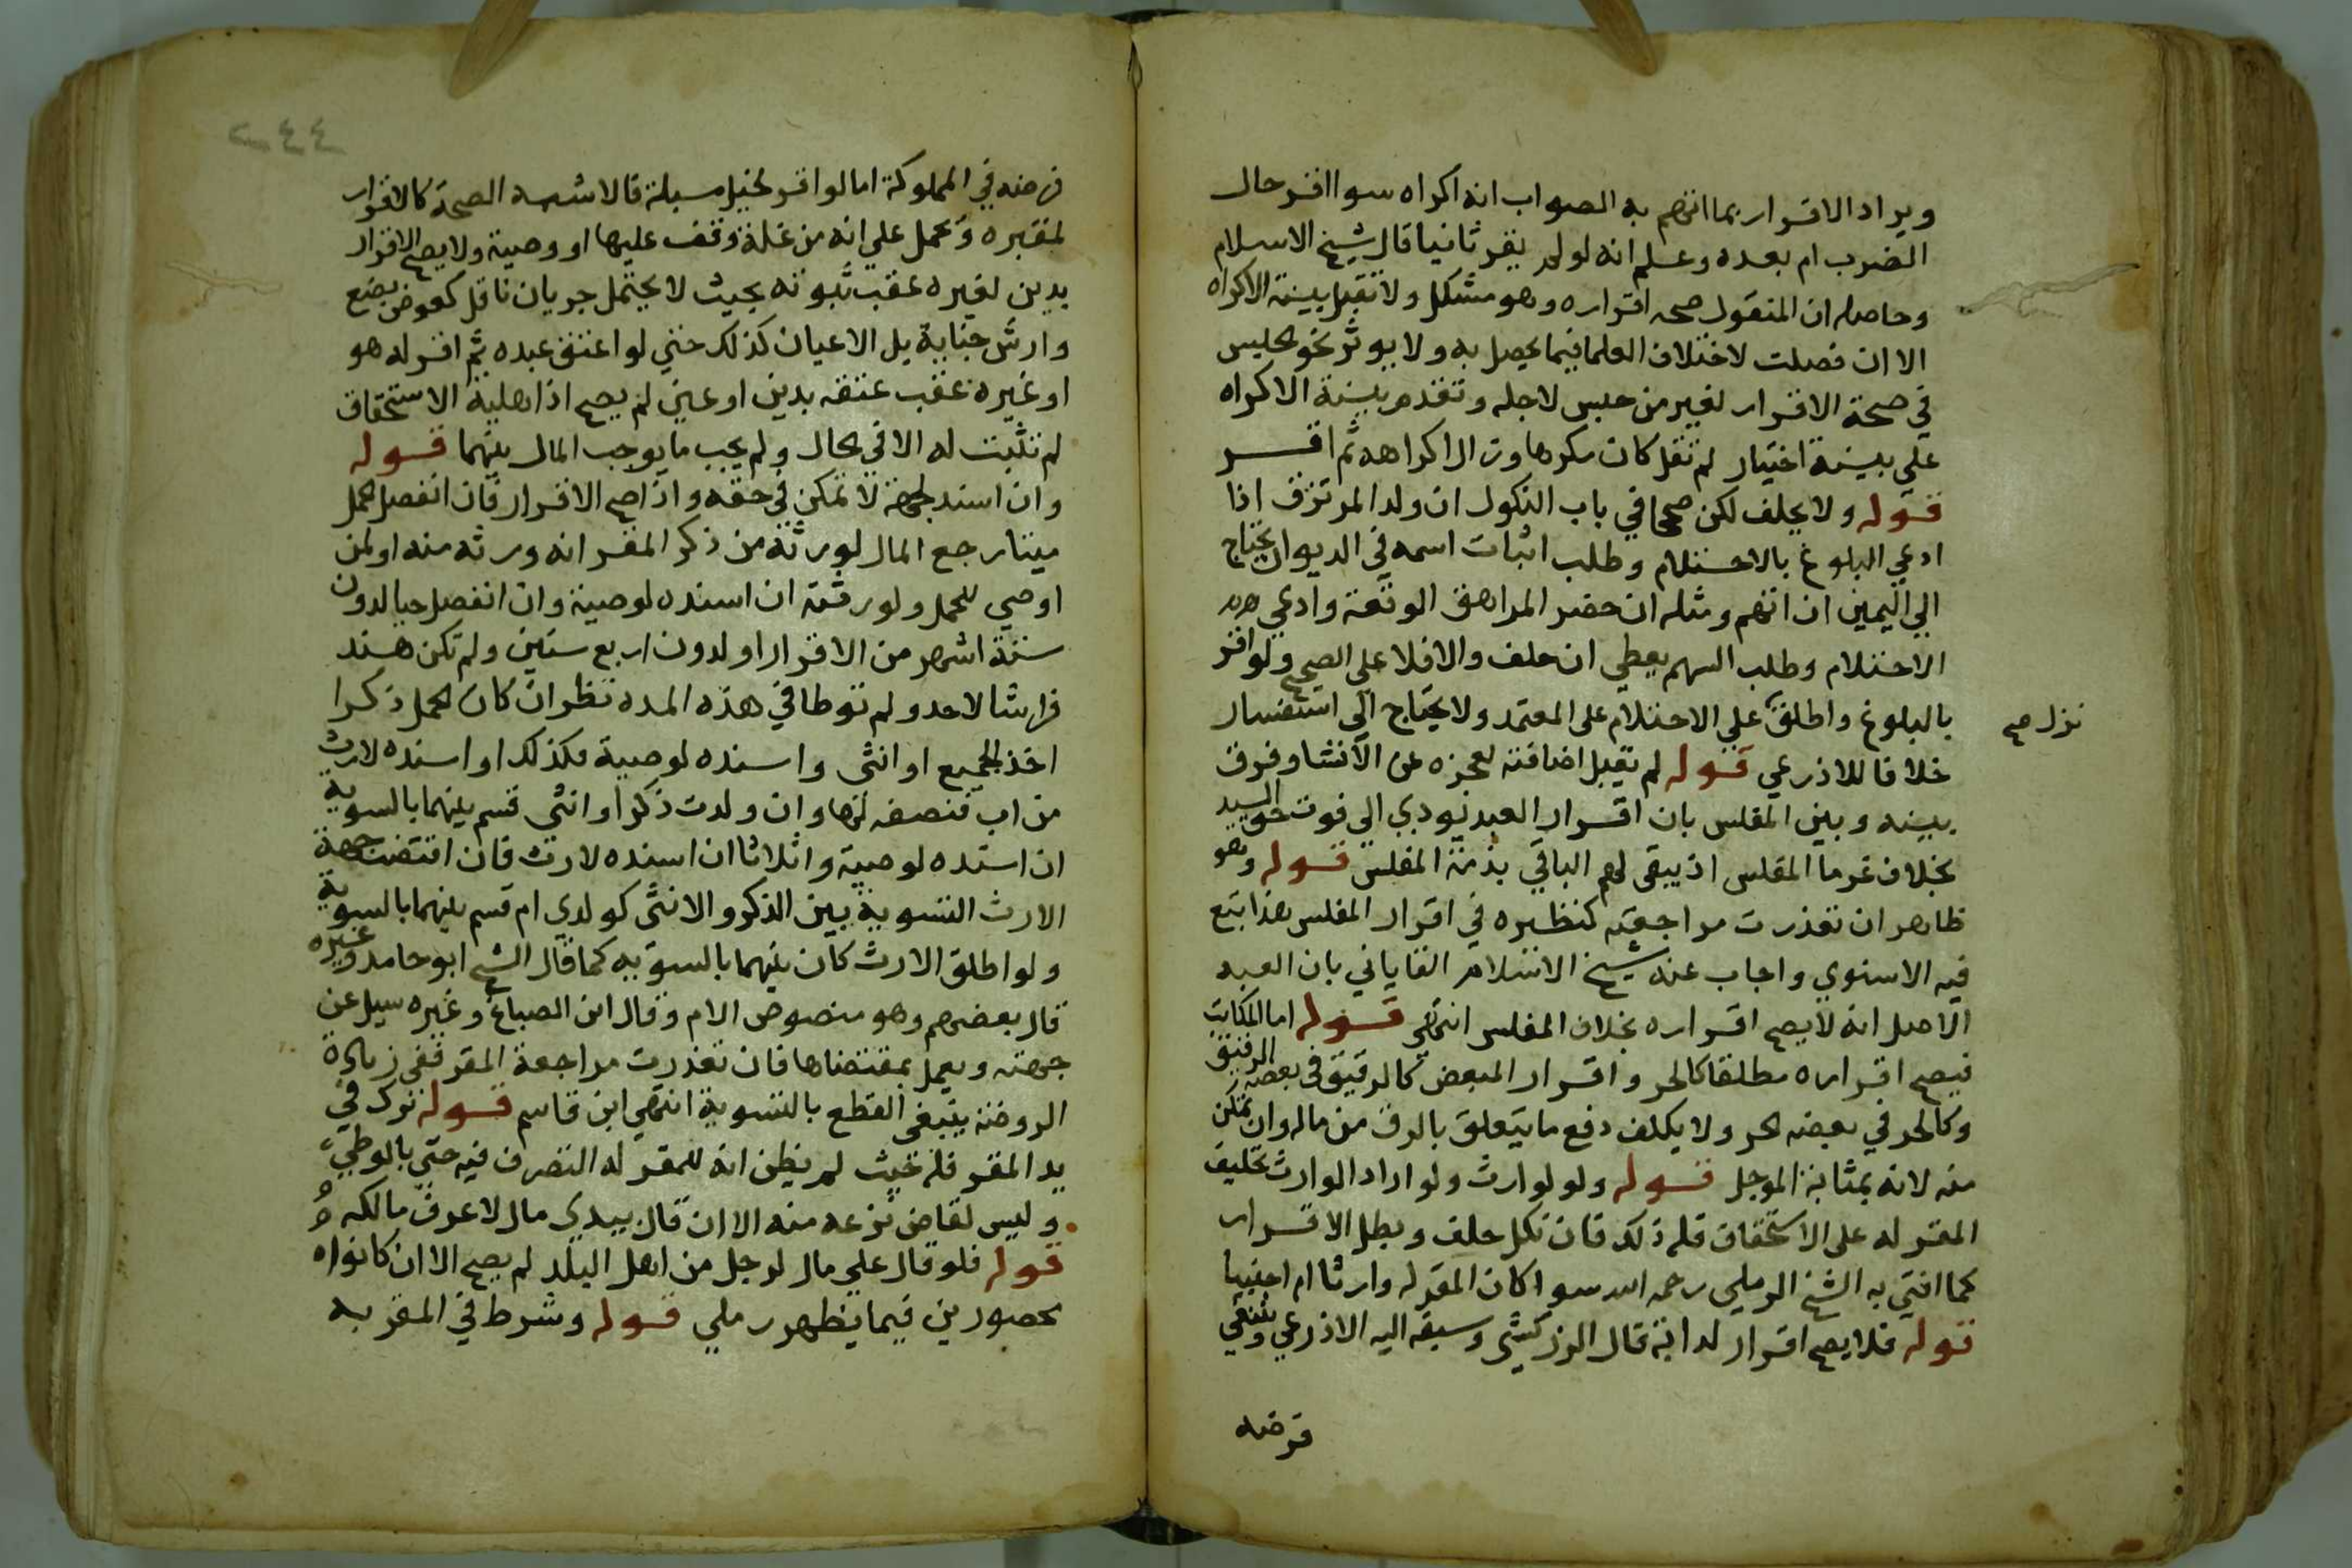 ويراد الاقرار بما اتهم به الصواب انه اكراه سوا اقر حال
الضرب ام بعده وعلم انه لو لم يقر ثانيا قال شيخ الاسلام
وحاصله ان المنقول صحه اقراره وهو مشكل ولا تقبل بينة الاكراه
الا ان فصلت لاختلاف العلما فيما يحصل به ولا يوثر نحو الحبس
في صحة الاقرار لغير من حبس لاجله وتقدم بينة الاكراه
على بينة اختيار لم تقل كان مكرها وزال اكراهه ثم اقر
قوله ولا يحلف لكن صححا في باب النكول ان ولد المرتزق اذا
ادعي البلوغ بالاحتلام وطلب اثبات اسمه في الديوان يحتاج
الي اليمين ان اتهم ومثله ان حضر المراهق الوقعة وادعي
الاحتلام وطلب السهم يعطي ان حلف والا فلا على الصحيح ولو اقر
بالبلوغ واطلق على الاحتلام على المعتمد ولا يحتاج الي استفسار
نزل صح
خلافا للاذرعي قوله لم تقبل اضافته لعجزه عن الانشا وفرق
بينه وبين المفلس بان اقرار العبد يودي الى فوت حق السيد
بخلاف غرما المفلس اذ يبقى لهم الباقي بذمة المفلس قوله وهو
ظاهر ان تعذرت مراجعته كنظيره في اقرار المفلس هذا تبع
فيه الاسنوي واجاب عنه شيخ الاسلام القاياتي بان العبد
الاصل انه لا يصح اقراره بخلاف المفلس انتهي قوله اما المكاتب
فيصح اقراره مطلقا كالحر واقرار المبعض كالرقيق في بعضه الرقيق
وكالحر في بعضه الحر ولا يكلف دفع ما يتعلق بالرق من ماله وان تمكن
منه لانه بمثابة الموجل قوله ولو لوارث ولو اراد الوارث تحليف
المقر له على الاستحقاق فله ذلك فان نكل حلف وبطل الاقرار
كما افتي به الشيخ الرملي رحمه الله سوا كان المقر له وارثا ام اجنبيا
قوله فلا يصح اقرار لدابة قال الزركشي وسبقه اليه الاذرعي وينبغي
فرضه
٢٤٤
فرضه في المملوكة اما لو اقر لخيل مسبلة فالاشبه الصحة كالاقرار
لمقبره ويحمل علي انه من غلة وقف عليها او وصية ولا يصح الاقرار
بدين لغيره عقب ثبوته بحيث لا يحتمل جريان ناقل كعوض بضع
وارش جناية بل الاعيان كذلك حتي لو اعتق عبده ثم اقر له هو
او غيره عقب عتقه بدين او عين لم يصح اذ اهلية الاستحقاق
لم تثبت له الا في الحال ولم يجب ما يوجب المال بينهما قوله
وان اسند لجهة لا تمكن في حقه واذا صح الاقرار فان انفصل الحمل
ميتا رجع المال لورثة من ذكر المقر انه ورثه منه او لمن
اوصي للحمل ولورثته ان اسنده لوصية وان انفصل حيا لدون
ستة اشهر من الاقرار او لدون اربع سنين ولم تكن هند
فراشا لاحد ولم توطا في هذه المده نظر ان كان الحمل ذكرا
اخذ الجميع او انثى واسنده لوصية فكذلك او اسنده لارث
من اب فنصفه لها وان ولدت ذكرا وانثى قسم بينهما بالسوية
ان اسنده لوصية واثلاثا ان اسنده لارث فان اقتضت جهة
الارث التسوية بين الذكر والانثى كولدي ام قسم بينهما بالسوية
ولو اطلق الارث كان بينهما بالسويه كما قال الشيخ ابو حامد وغيره
قال بعضهم وهو منصوص الام وقال ابن الصباغ وغيره سيل عن
جهته ويعمل بمقتضاها فان تعذرت مراجعة المقر ففي زيادة
الروضة ينبغي القطع بالتسوية انتهي ابن قاسم قوله ترك في
يد المقر فله حيث لم يظن انه للمقر له التصرف فيه حتي بالوطي
وليس لقاض نزعه منه الا ان قال بيدي مال لا اعرف مالكه
قوله فلو قال علي مال لرجل من اهل البلد لم يصح الا ان كانوا
محصورين فيما يظهر رملي قوله وشرط في المقر به